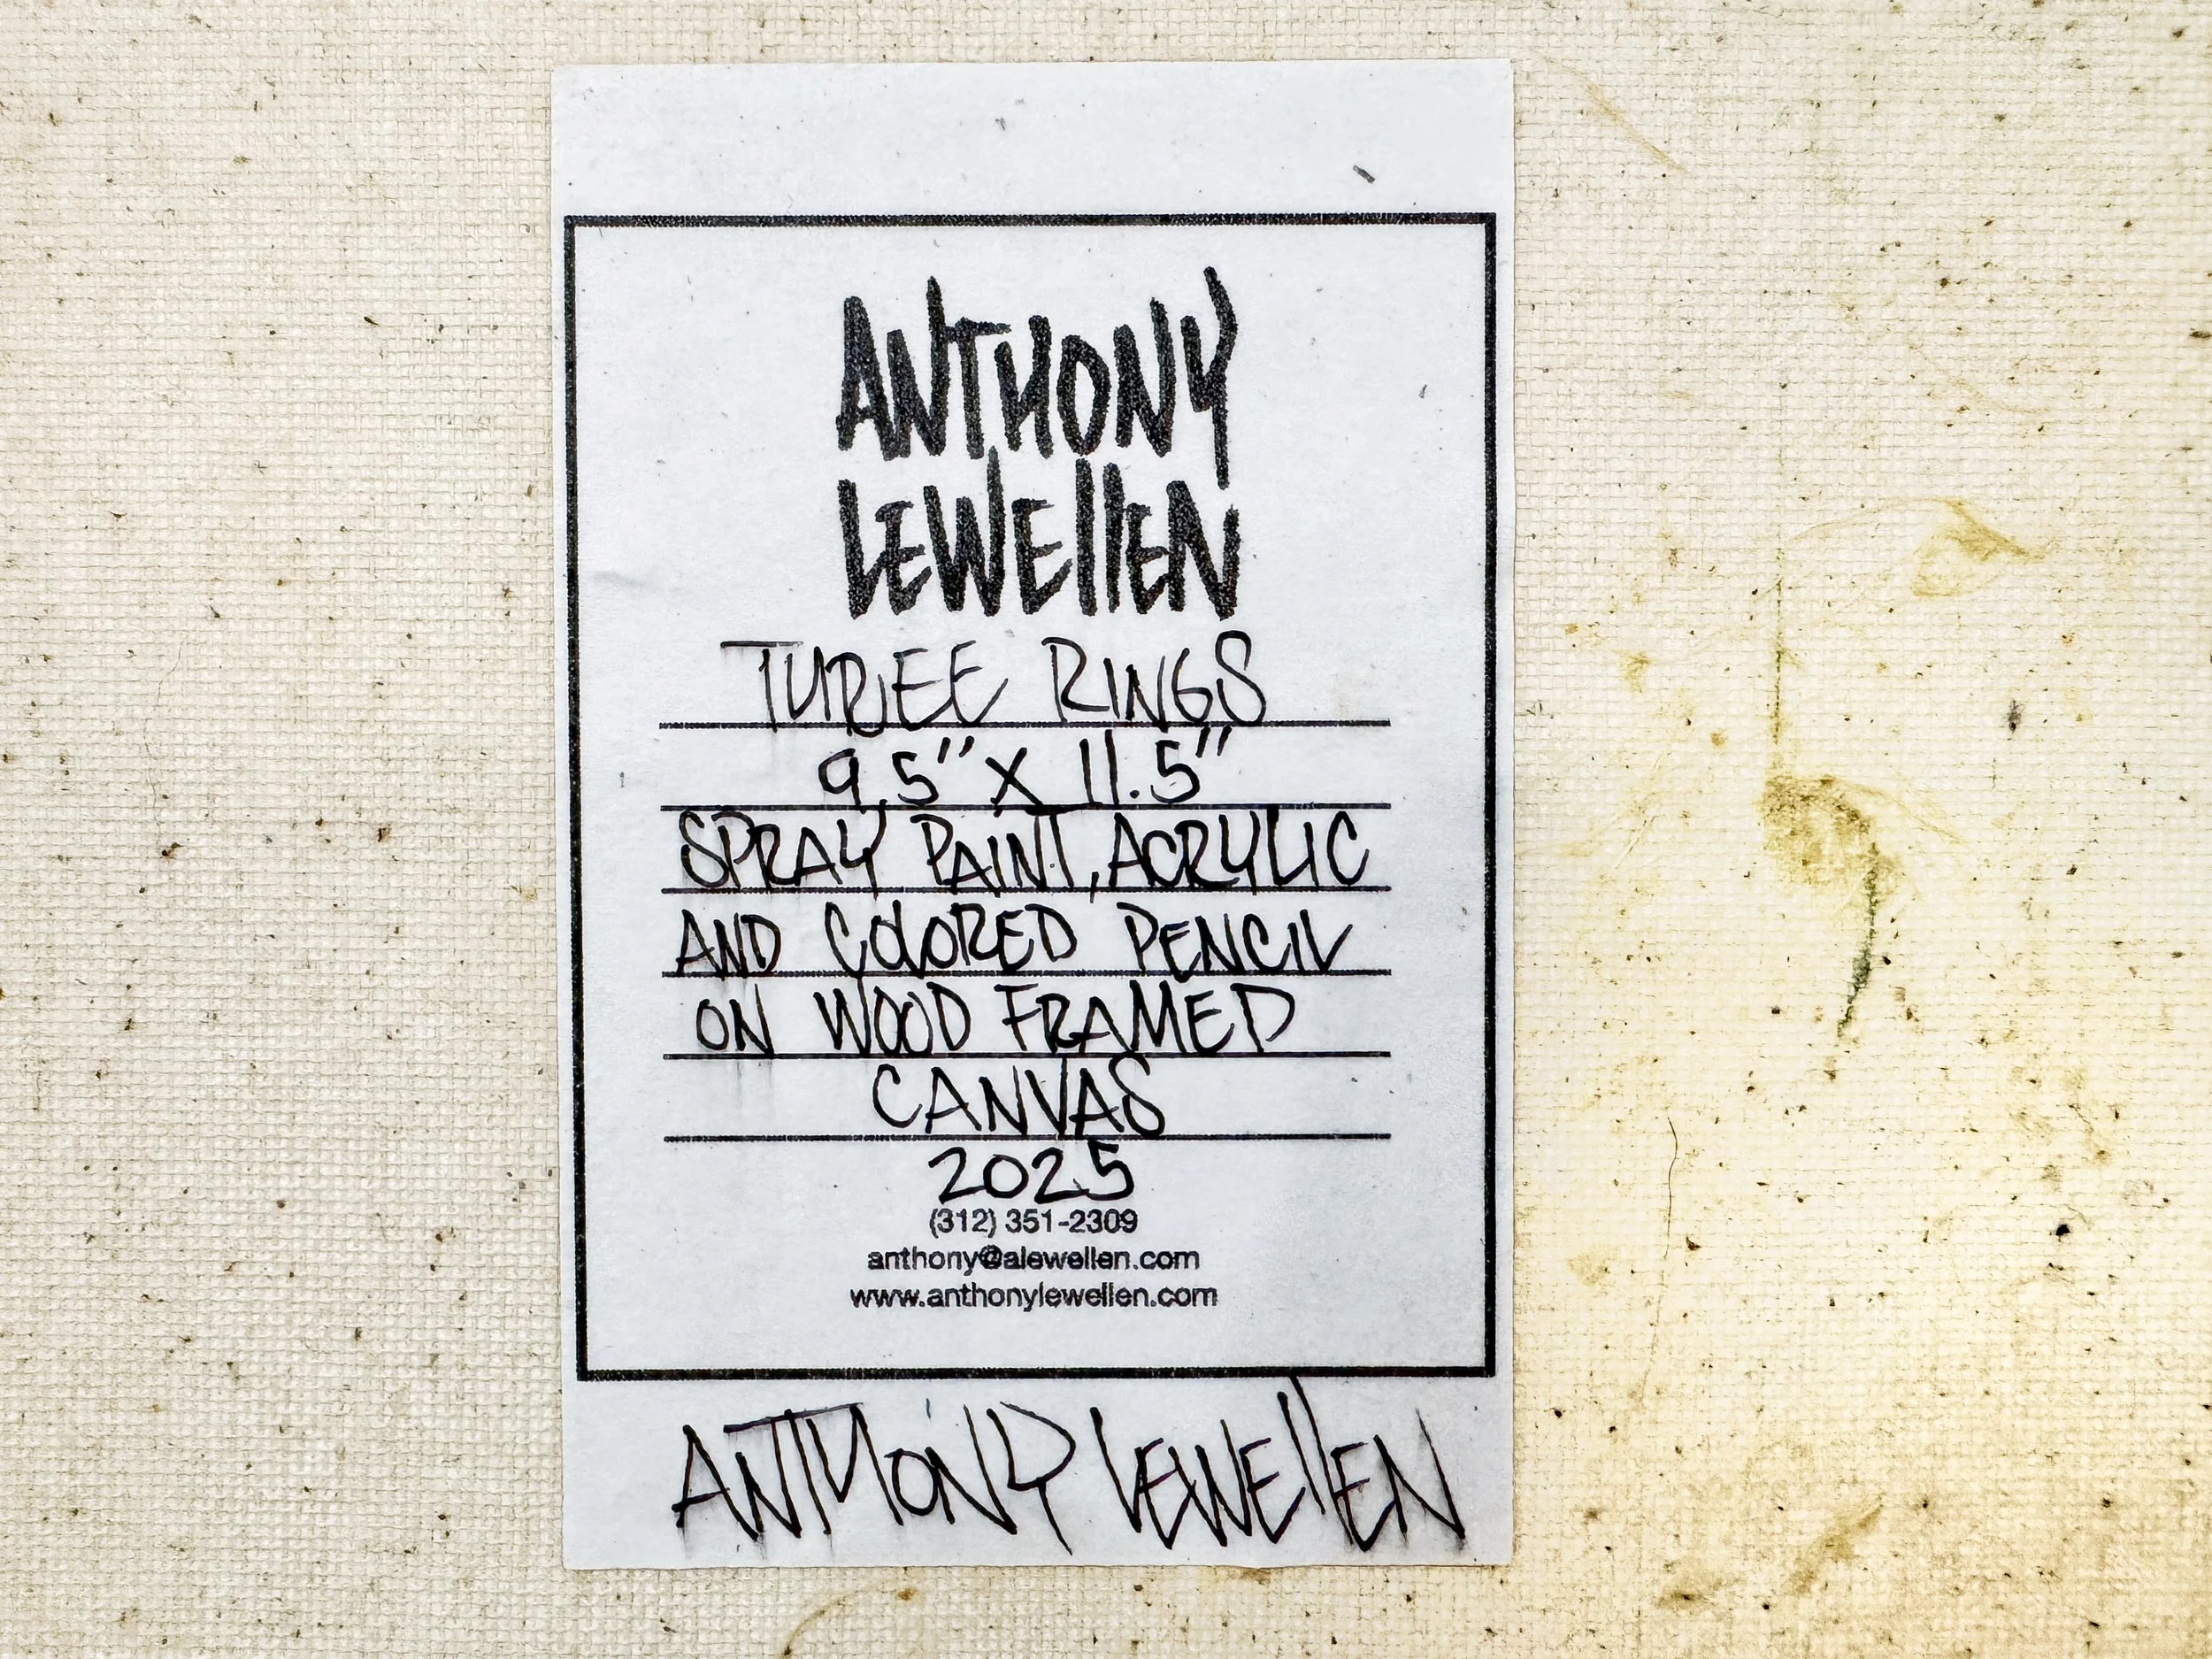 ANTHONY
LEWEllEN
THREE RINGS
9.5" X 11.5"
SPRAY PAINT, ACRYLIC
AND COLORED PENCIL
ON WOOD FRAMED
CANVAS
2025
(312) 351-2309
anthony@alewellen.com
www.anthonylewellen.com
ANTHONY LEWEllEN